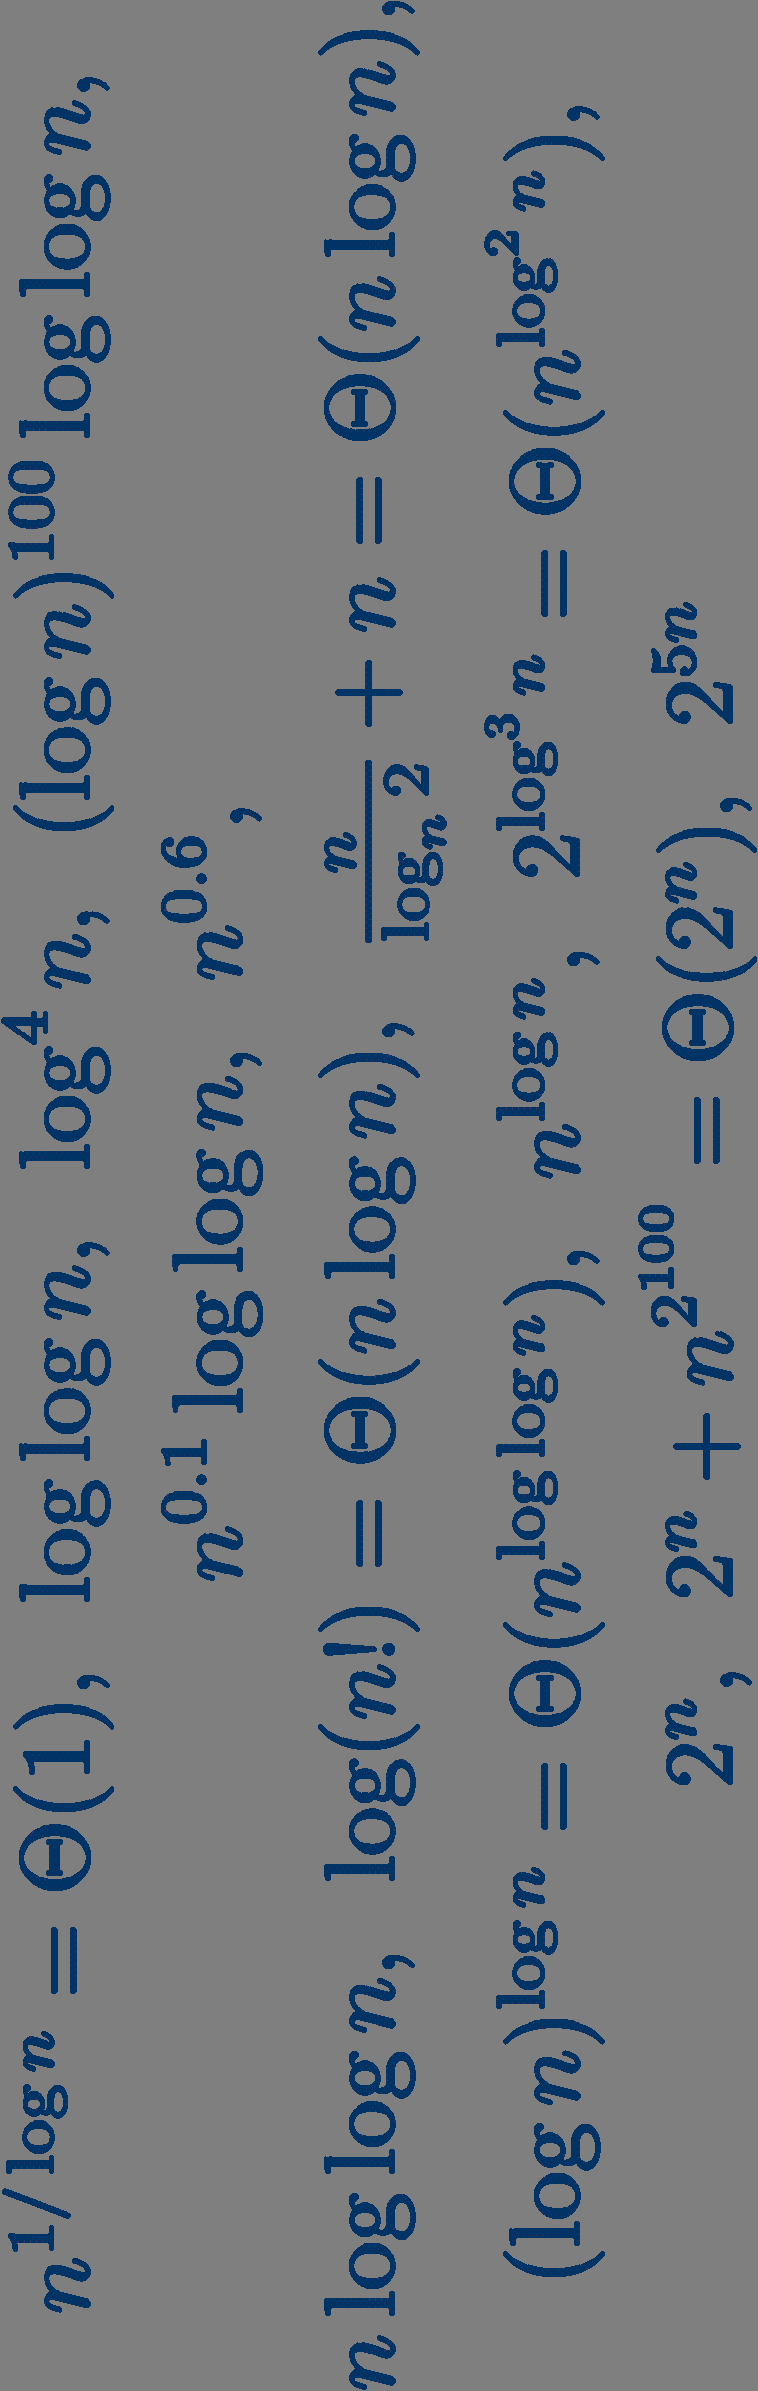 n^{1/log n} = Θ(1), log log n, log^4 n, (log n)^{100} log log n,
n^{0.1} log log n, n^{0.6},
n log log n, log(n!) = Θ(n log n), \frac{n}{log_n 2} + n = Θ(n log n),
(log n)^{log n} = Θ(n^{log log n}), n^{log n}, 2^{log^3 n} = Θ(n^{log^2 n}),
2^n, 2^n + n^{2^{100}} = Θ(2^n), 2^{5n}